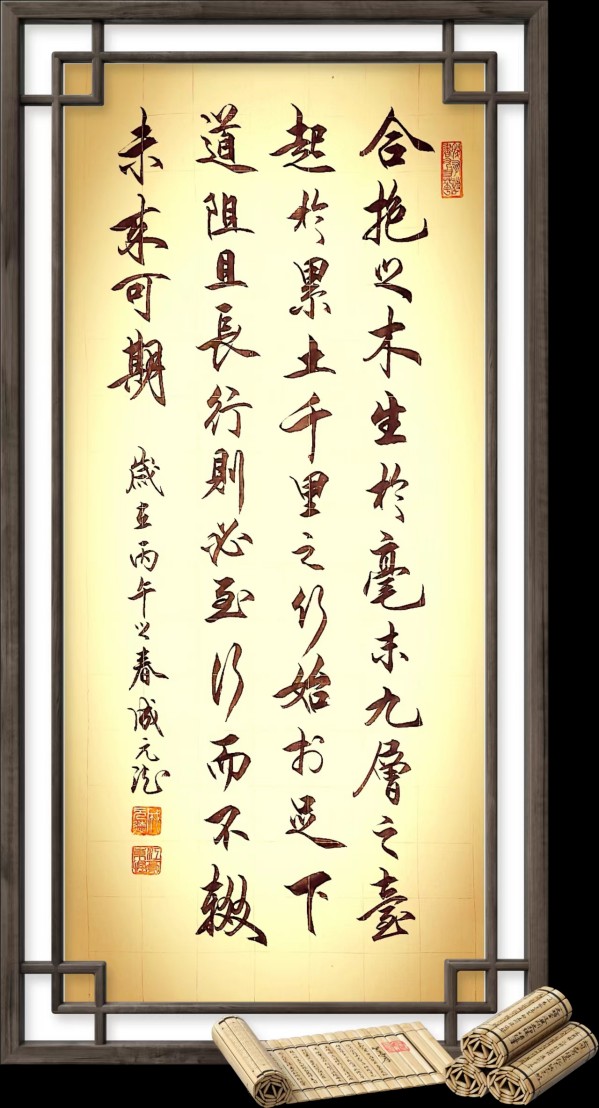 合抱之木生於毫末九層之臺
起於累土千里之行始於足下
道阻且長行則必至行而不輟
未來可期
歲在丙午之春成元